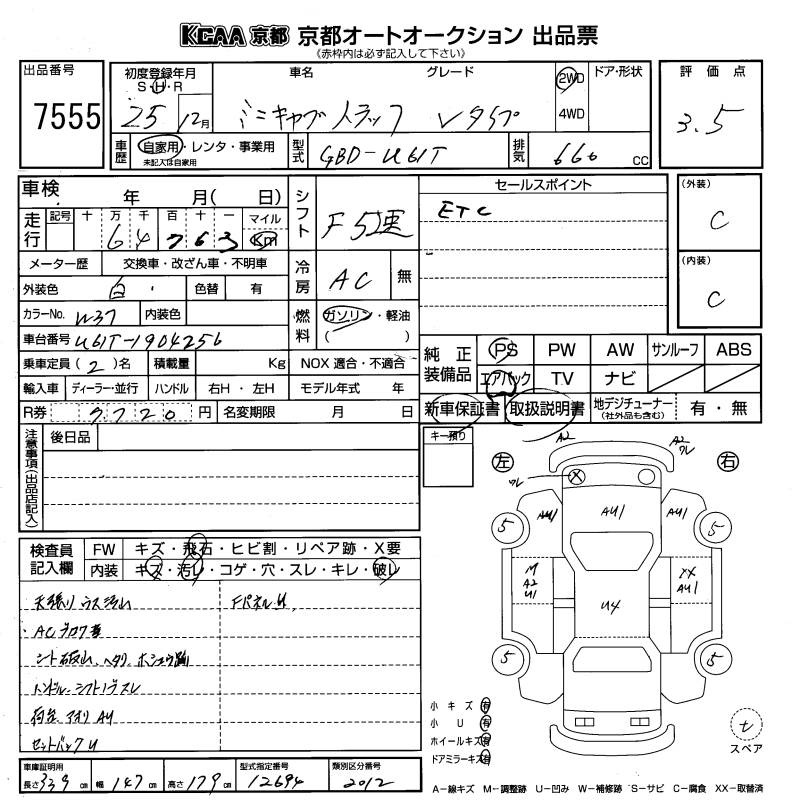 KCAA 京都 京都オートオークション 出品票
《赤枠内は必ず記入して下さい》
出品番号
7555
初度登録年月
S・H・R
25 12月
車名 グレード
ミニキャブトラック Vタイプ
2WD
4WD
ドア・形状
評価点
3.5
車歴 自家用・レンタ・事業用
未記入は自家用
型式 GBD-U61T
排気 660 cc
車検 年 月( 日)
走行 記号 十 万 千 百 十 一 マイル
64763 Km
メーター歴 交換車・改ざん車・不明車
外装色 白 色替 有
カラーNo. W37 内装色
車台番号 U61T-1904256
乗車定員 (2)名 積載量 Kg
輸入車 ディーラー・並行 ハンドル 右H・左H
R券 7720 円 名変期限 月 日
シフト F5速
冷房 AC 無
燃料 ガソリン・軽油
( )
NOX 適合・不適合
モデル年式 年
セールスポイント
ETC
(外装)
C
(内装)
C
純正装備品
PS PW AW サンルーフ ABS
エアバック TV ナビ
新車保証書 取扱説明書 地デジチューナー(社外品も含む) 有・無
注意事項(出品店記入)
後日品
キー預り
検査員記入欄
FW キズ・飛石・ヒビ割・リペア跡・X要
内装 キズ・汚レ・コゲ・穴・スレ・キレ・破レ
Fパネル U
ハンドル シフトノブスレ
荷台 アオリ AU
セットバック U
左 右
A2
A2
ワレ
ワレ
AU1 AU1 AU1
5 5
M
A2
U1
XX
AU1
U4
5 5
小キズ 有
小U 有
ホイールキズ 有
ドアミラーキズ 有
t
スペア
車庫証明用
長さ 339 cm 幅 147 cm 高さ 179 cm
型式指定番号 12694
類別区分番号 2012
A−線キズ M−調整跡 U−凹み W−補修跡 S−サビ C−腐食 XX−取替済